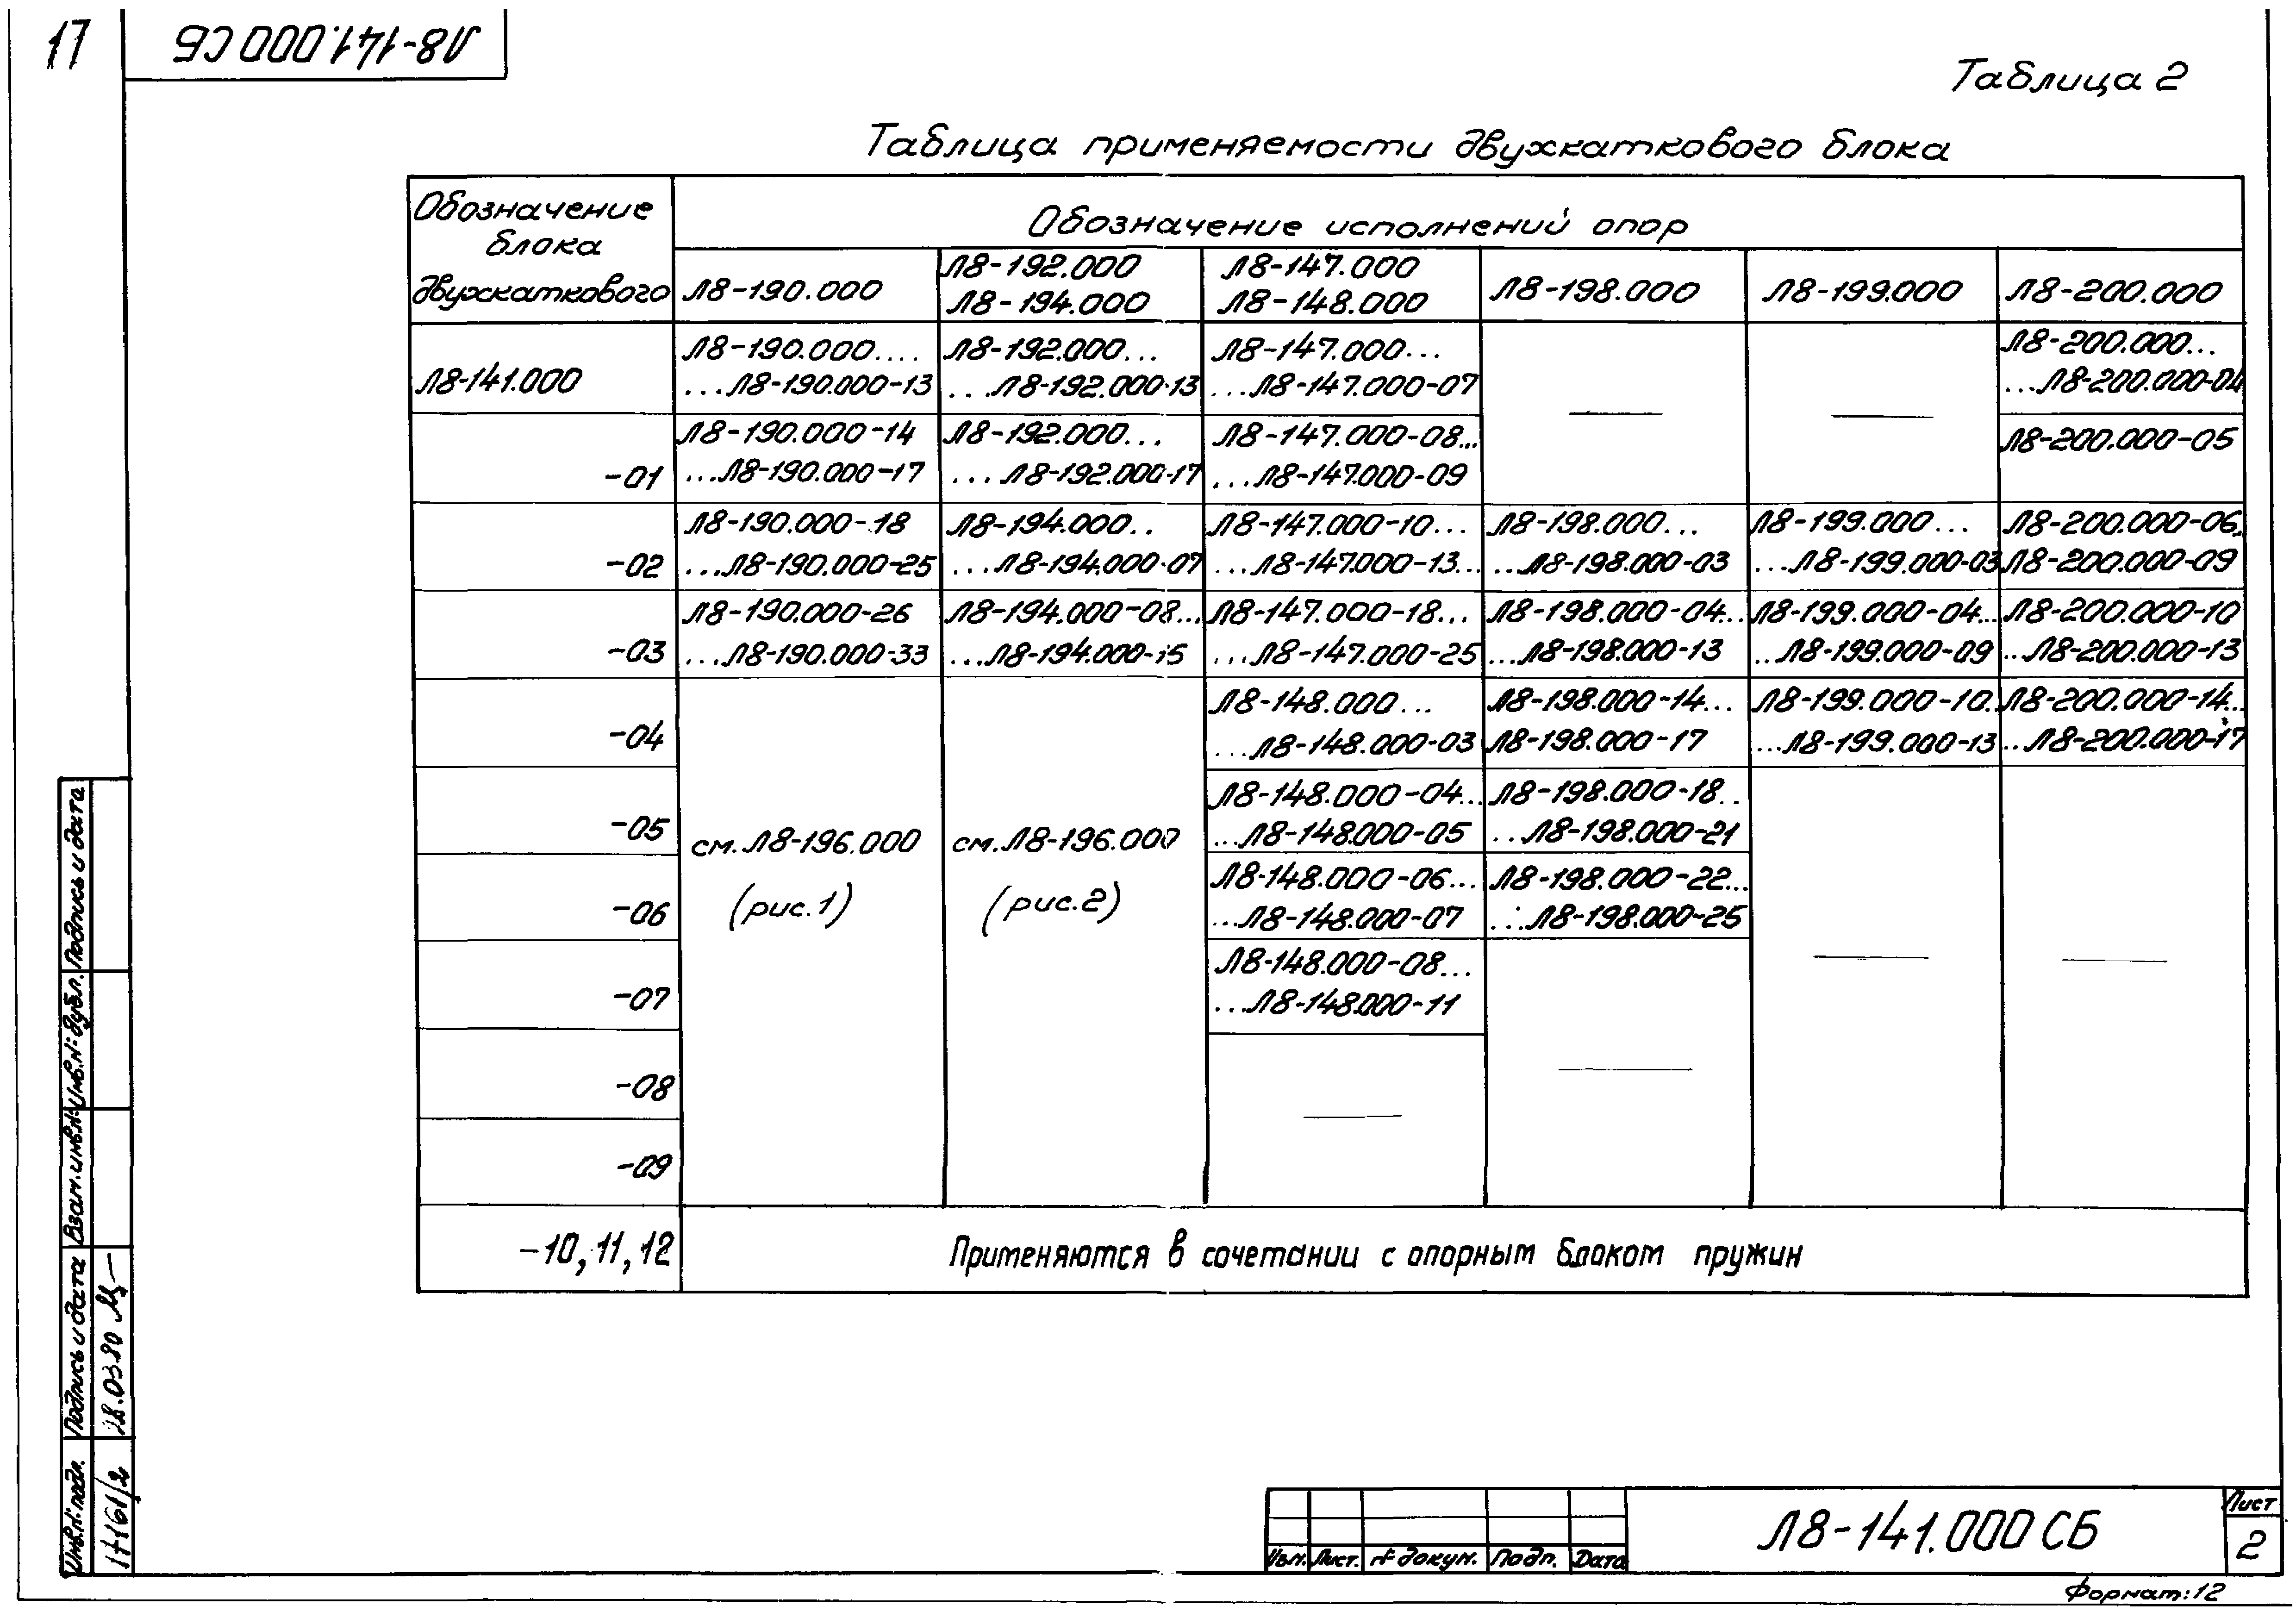 17
Л8-141.000 СБ
Таблица 2
Таблица применяемости двухкаткового блока
Обозначение
блока
двухкаткового
Обозначение исполнений опор
Л8-190.000
Л8-192.000
Л8-194.000
Л8-147.000
Л8-148.000
Л8-198.000
Л8-199.000
Л8-200.000
Л8-141.000
Л8-190.000....
...Л8-190.000-13
Л8-192.000...
...Л8-192.000-13
Л8-147.000...
...Л8-147.000-07
—
—
Л8-200.000...
...Л8-200.000-04
-01
Л8-190.000-14
...Л8-190.000-17
Л8-192.000...
...Л8-192.000-17
Л8-147.000-08...
...Л8-147.000-09
Л8-200.000-05
-02
Л8-190.000-18
...Л8-190.000-25
Л8-194.000..
...Л8-194.000-07
Л8-147.000-10...
...Л8-147.000-13...
Л8-198.000...
...Л8-198.000-03
Л8-199.000...
...Л8-199.000-03
Л8-200.000-06..
Л8-200.000-09
-03
Л8-190.000-26
...Л8-190.000-33
Л8-194.000-08...
...Л8-194.000-15
Л8-147.000-18...
...Л8-147.000-25
Л8-198.000-04...
...Л8-198.000-13
Л8-199.000-04...
...Л8-199.000-09
Л8-200.000-10
...Л8-200.000-13
-04
Л8-148.000...
...Л8-148.000-03
Л8-198.000-14...
Л8-198.000-17
Л8-199.000-10..
...Л8-199.000-13
Л8-200.000-14...
...Л8-200.000-17
-05
см. Л8-196.000
(рис.1)
см. Л8-196.000
(рис.2)
Л8-148.000-04...
...Л8-148.000-05
Л8-198.000-18..
...Л8-198.000-21
-06
Л8-148.000-06...
...Л8-148.000-07
Л8-198.000-22...
...Л8-198.000-25
-07
Л8-148.000-08...
...Л8-148.000-11
—
—
-08
—
—
-09
-10, 11, 12
Применяются в сочетании с опорным блоком пружин
Инв.№ подл.
Подпись и дата
Взам.инв.№
Инв.№ дубл.
Подпись и дата
17161/2
28.03.80
Изм.
Лист.
№ докум.
Подп.
Дата
Л8-141.000 СБ
Лист
2
Формат: 12